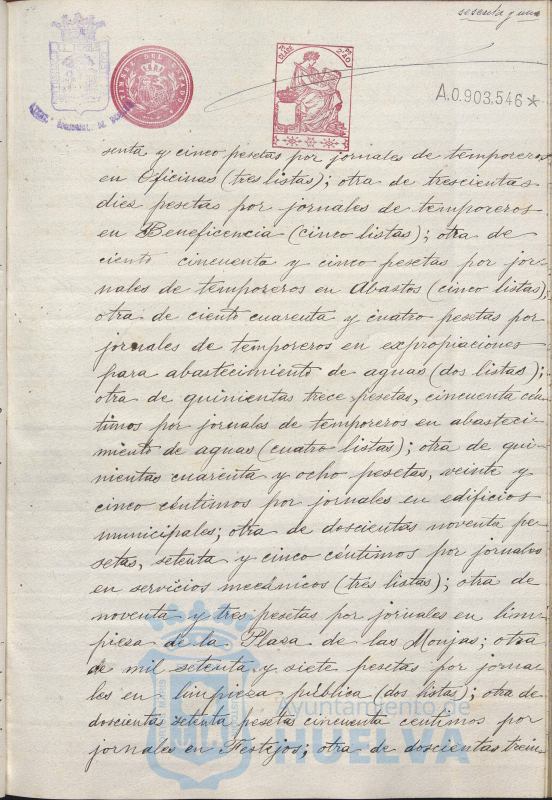 sesenta y una
TIMBRE DEL ESTADO
A.0.903.546*
senta y cinco pesetas por jornales de temporeros
en Oficinas (tres listas); otra de trescientas
diez pesetas por jornales de temporeros
en Beneficencia (cinco listas); otra de
ciento cincuenta y cinco pesetas por jor-
nales de temporeros en Abastos (cinco listas);
otra de ciento cuarenta y cuatro pesetas por
jornales de temporeros en expropiaciones
para abastecimiento de aguas (dos listas);
otra de quinientas trece pesetas, cincuenta cén-
timos por jornales de temporeros en abasteci-
miento de aguas (cuatro listas); otra de qui-
nientas cuarenta y ocho pesetas, veinte y
cinco céntimos por jornales en edificios
municipales; otra de doscientas noventa pe-
setas, setenta y cinco céntimos por jornales
en servicios mecánicos (tres listas); otra de
noventa y tres pesetas por jornales en lim-
pieza de la Plaza de las Monjas; otra
de mil setenta y siete pesetas por jorna-
les en limpieza pública (dos listas); otra de
doscientas setenta pesetas cincuenta centimos por
jornales en Festejos; otra de doscientas trein-
Ayuntamiento de
HUELVA